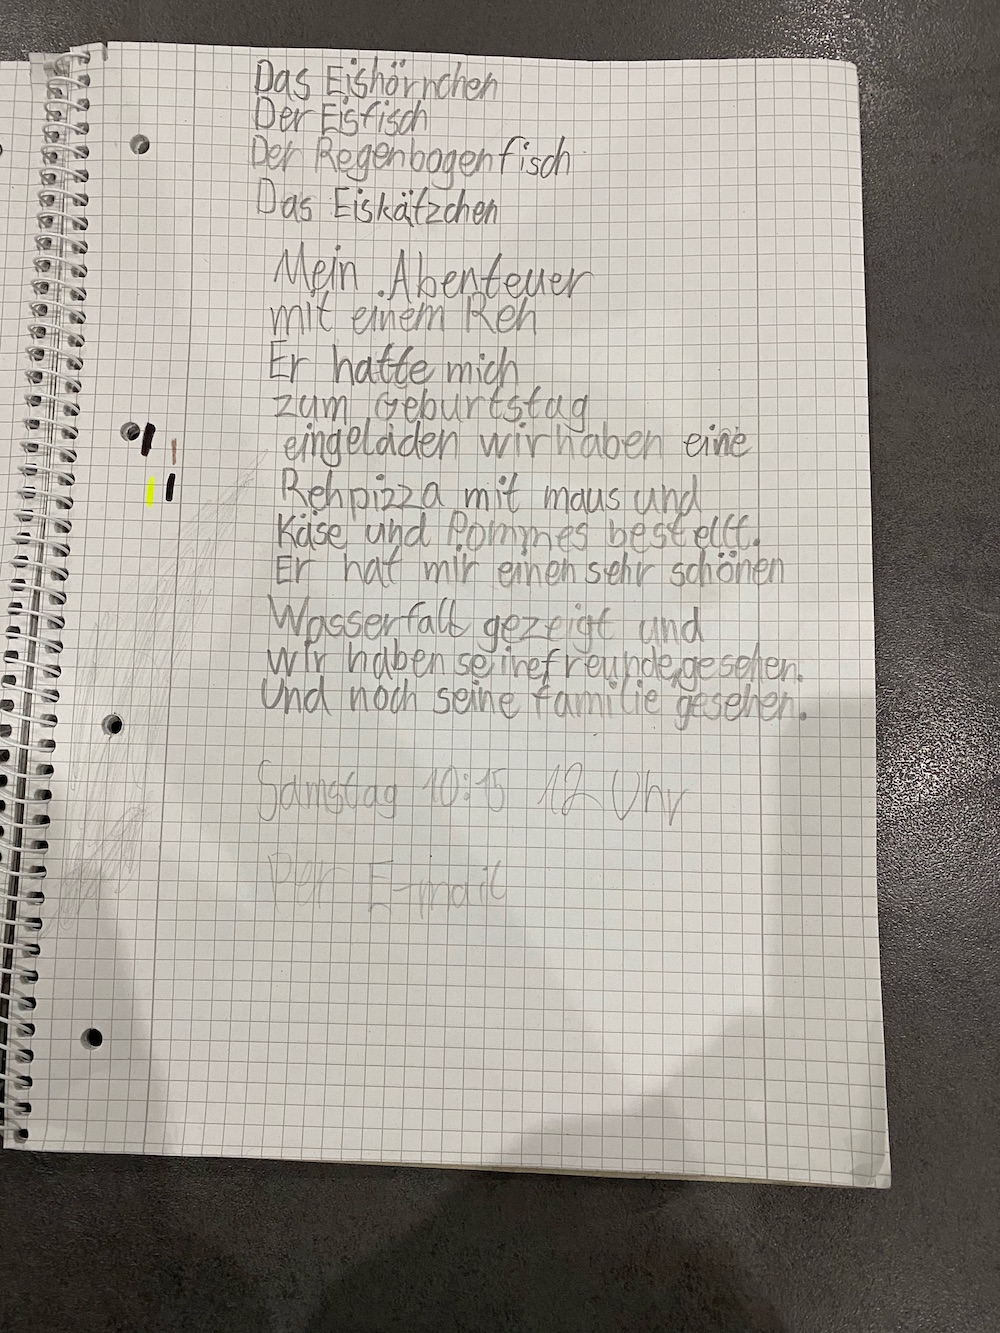 Das Eishörnchen
Der Eisfisch
Der Regenbogenfisch
Das Eiskätzchen
Mein Abenteuer
mit einem Reh
Er hatte mich
zum Geburtstag
eingeladen wir haben eine
Rehpizza mit maus und
Käse und Pommes bestellt.
Er hat mir einen sehr schönen
Wasserfall gezeigt und
wir haben seine freunde gesehen.
Und noch seine familie gesehen.
Samstag 10:15 12 Uhr
per E-mail